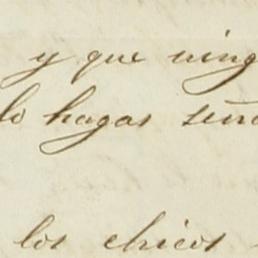 y que ning
lo hagas señ
los chicos